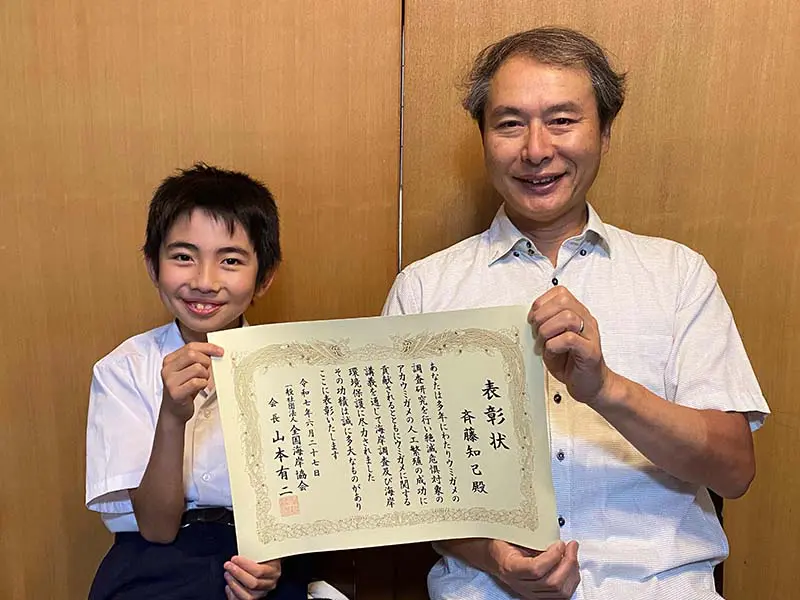 表彰状
斉藤知己殿
あなたは多年にわたりウミガメの
調査研究を行い絶滅危惧対象の
アカウミガメの人工繁殖の成功に
貢献されるとともにウミガメに関する
講義を通して海岸調査及び海岸
環境保護に尽力されました
その功績は誠に多大なものがあり
ここに表彰いたします
令和七年六月二十七日
一般社団法人全国海岸協会
会長 山本有二